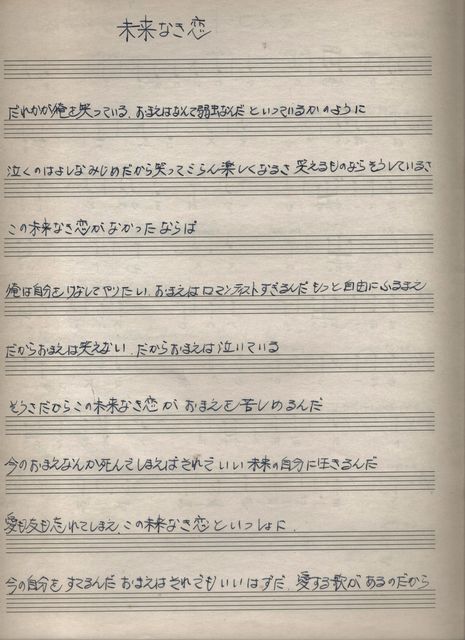 未来なき恋
だれかが俺を笑っている、おまえはなんて弱虫なんだ といっているかのように
泣くのはよしなみじめだから笑ってごらん楽しくなるさ 笑えるものならそうしているさ
この未来なき恋がなかったならば
俺は自分を してやりたい、おまえはロマンチストすぎるんだ もっと自由にふるまえ
だからおまえは笑えない、だからおまえは泣いている
そうさだからこの未来なき恋が おまえを苦しめるんだ
今のおまえなんか死んでしまえばそれでいい 未来の自分に生きるんだ
愛も友も忘れてしまえ、この未来なき恋といっしょに、
今の自分をすてるんだ おまえはそれでもいいはずだ、愛する歌があるのだから